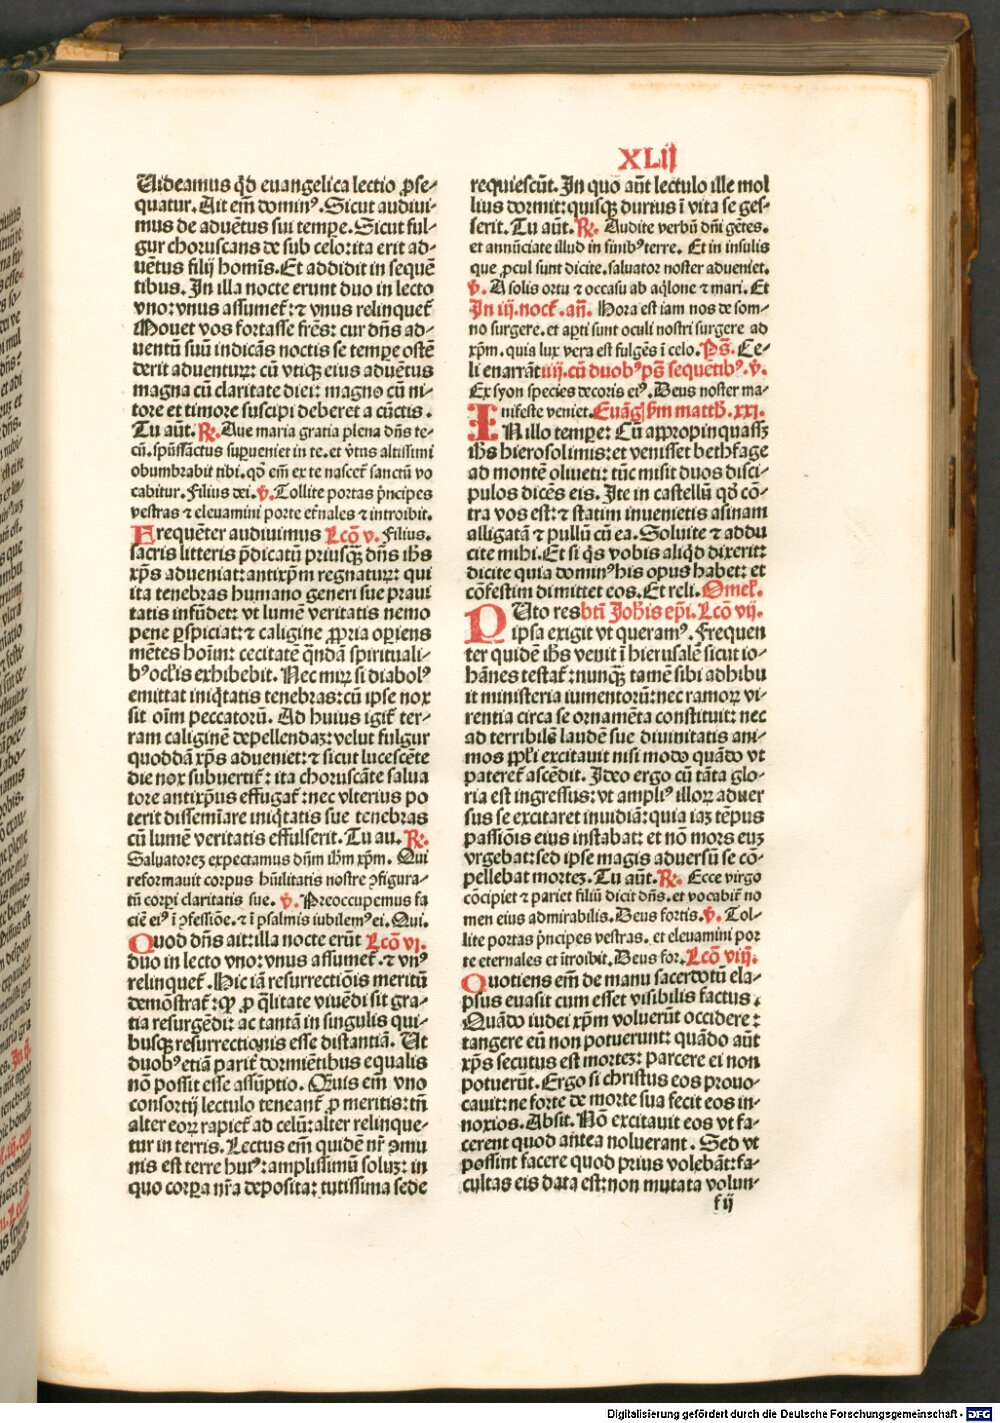 XLIJ
Uideamus qd̄ euangelica lectio ꝓse-
quatur. Ait em̄ domin⁹. Sicut audiui-
mus de aduētus sui temꝑe. Sicut ful-
gur choruscans de sub celo: ita erit ad-
uētus filij homīs. Et addidit in sequē
tibus. In illa nocte erunt duo in lecto
vno: vnus assumet̄: ⁊ vnus relinquet̄
Mouet vos fortasse fr̄es: cur dn̄s ad-
uentū suū indicās noctis se temꝑe ostē
derit aduenturꝝ: cū vtiqꝫ eius aduētus
magna cū claritate diei: magno cū ni-
tore et timore suscipi deberet a cūctis.
Tu aūt. ℟. Aue maria gratia plena dn̄s te-
cū. spūssāctus suꝑueniet in te. et v̄tus altissimi
obumbrabit tibi. qō em̄ ex te nascet̄ sanctū vo
cabitur. Filius dei. ℣. Tollite portas p̄ncipes
vestras ⁊ eleuamini porte et̄nales ⁊ introibit.
Frequēter audiuimus Lcō v. Filius.
sacris litteris p̄dicatū priusqꝫ dn̄s ih̄s
xp̄s adueniat: antixp̄m regnaturꝝ: qui
ita tenebras humano generi sue praui
tatis infūdet: vt lumē veritatis nemo
pene ꝑspiciat: ⁊ caligine ꝓpria oꝑiens
mētes hoīm: cecitatē qn̄dā spirituali-
b⁹ ocl̄is exhibebit. Nec mirꝝ si diabol⁹
emittat iniq̄tatis tenebras: cū ipse nox
sit oīm peccatorū. Ad huius igit̄ ter-
ram caliginē depellendaꝫ: velut fulgur
quoddā xp̄s adueniet: ⁊ sicut lucescēte
die nox subuertit̄: ita choruscāte salua
tore antixp̄us effugat̄: nec vlterius po
terit dissemīare iniq̄tatis sue tenebras
cū lumē veritatis effulserit. Tu au. ℟.
Saluatoreꝫ expectamus dn̄m ih̄m xp̄m. Qui
reformauit corpus hūilitatis nostre ↄfigura-
tū corꝑi claritatis sue. ℣. Preoccupemus fa
ciē ei⁹ ī ↄfessiōe. ⁊ ī psalmis iubilem⁹ ei. Qui.
Quod dn̄s ait: illa nocte erūt Lcō vj.
duo in lecto vno: vnus assumet̄. ⁊ vn⁹
relinquet̄. Hic iā resurrectiōis meritū
demōstrat̄: ꝙ ꝓ q̄litate viuēdi sit gra-
tia resurgēdi: ac tantā in singulis qui-
busqꝫ resurrectionis esse distantiā. Ut
duob⁹ etiā parit̄ dormiētibus equalis
nō possit esse assūptio. Quis em̄ vno
consortij lectulo teneant̄ ꝓ meritis: tn̄
alter eorꝝ rapiet̄ ad celū: alter relinque-
tur in terris. Lectus em̄ quidē nr̄ ↄmu
nis est terre hui⁹: amplissimū soluꝫ: in
quo corꝑa nr̄a deposita: tutissima sede
requiescūt. In quo aūt lectulo ille mol
lius dormit: quisqꝫ durius ī vita se ges-
serit. Tu aūt. ℟. Audite verbū dn̄i gētes.
et annūciate illud in finib⁹ terre. Et in insulis
que ꝓcul sunt dicite. saluator noster adueniet.
℣. A solis ortu ⁊ occasu ab aq̄lone ⁊ mari. Et
In iij. noct̄. an̄. Hora est iam nos de som-
no surgere. et aꝑti sunt oculi nostri surgere ad
xp̄m. quia lux vera est fulgēs ī celo. Ps̄. Ce-
li enarrāt iiij. cū duob⁹ ps̄ sequētib⁹. ℣.
Ex syon species decoris ei⁹. Deus noster ma-
nifeste veniet. Euāgꝉ ẜm matth̄. xxj.
IN illo temꝑe: Cū aꝓpropinquassꝫ
ih̄s hierosolimis: et venisset bethfage
ad montē oliueti: tūc misit duos disci-
pulos dicēs eis. Ite in castellū qō cō-
tra vos est: ⁊ statim inuenietis asinam
alligatā ⁊ pullū cū ea. Soluite ⁊ addu
cite mihi. Et si q̄s vobis aliqd̄ dixerit:
dicite quia domin⁹ his opus habet: et
cōfestim dimittet eos. Et reli. Omel̄.
PUto res btī Joh̄is ep̄i. Lcō vij.
ipsa exigit vt queram⁹. Frequen
ter quidē ih̄s venit ī hierusalē sicut io-
hānes testat̄: nunqꝫ tamē sibi adhibu
it ministeria iumentorū: nec ramorꝝ vi-
rentia circa se ornamēta constituit: nec
ad terribilē laudē sue diuinitatis ani-
mos ppl̄i excitauit nisi modo quādo vt
pateret̄ ascēdit. Ideo ergo cū tāta glo-
ria est ingressus: vt ampli⁹ illorꝝ aduer
sus se excitaret inuidiā: quia iaꝫ tēpus
passiōis eius instabat: et nō mors euꝫ
vrgebat: sed ipse magis aduersū se cō-
pellebat morteꝫ. Tu aūt. ℟. Ecce virgo
cōcipiet ⁊ pariet filiū dicit dn̄s. et vocabit̄ no
men eius admirabilis. Deus fortis. ℣. Tol-
lite portas p̄ncipes vestras. et eleuamini por
te eternales et ītroibit. Deus for. Lcō viij.
Quotiens em̄ de manu sacerdotū ela-
psus euasit cum esset visibilis factus.
Quādo iudei xp̄m voluerūt occidere:
tangere eū non potuerunt: quādo aūt
xp̄s secutus est morteꝫ: parcere ei non
potuerūt. Ergo si christus eos prouo-
cauit: ne forte de morte sua fecit eos in-
noxios. Absit. Nō excitauit eos vt fa-
cerent quod antea noluerant. Sed vt
possint facere quod prius volebāt: fa-
cultas eis data est: non mutata volun-
f ij
Digitalisierung gefördert durch die Deutsche Forschungsgemeinschaft - DFG